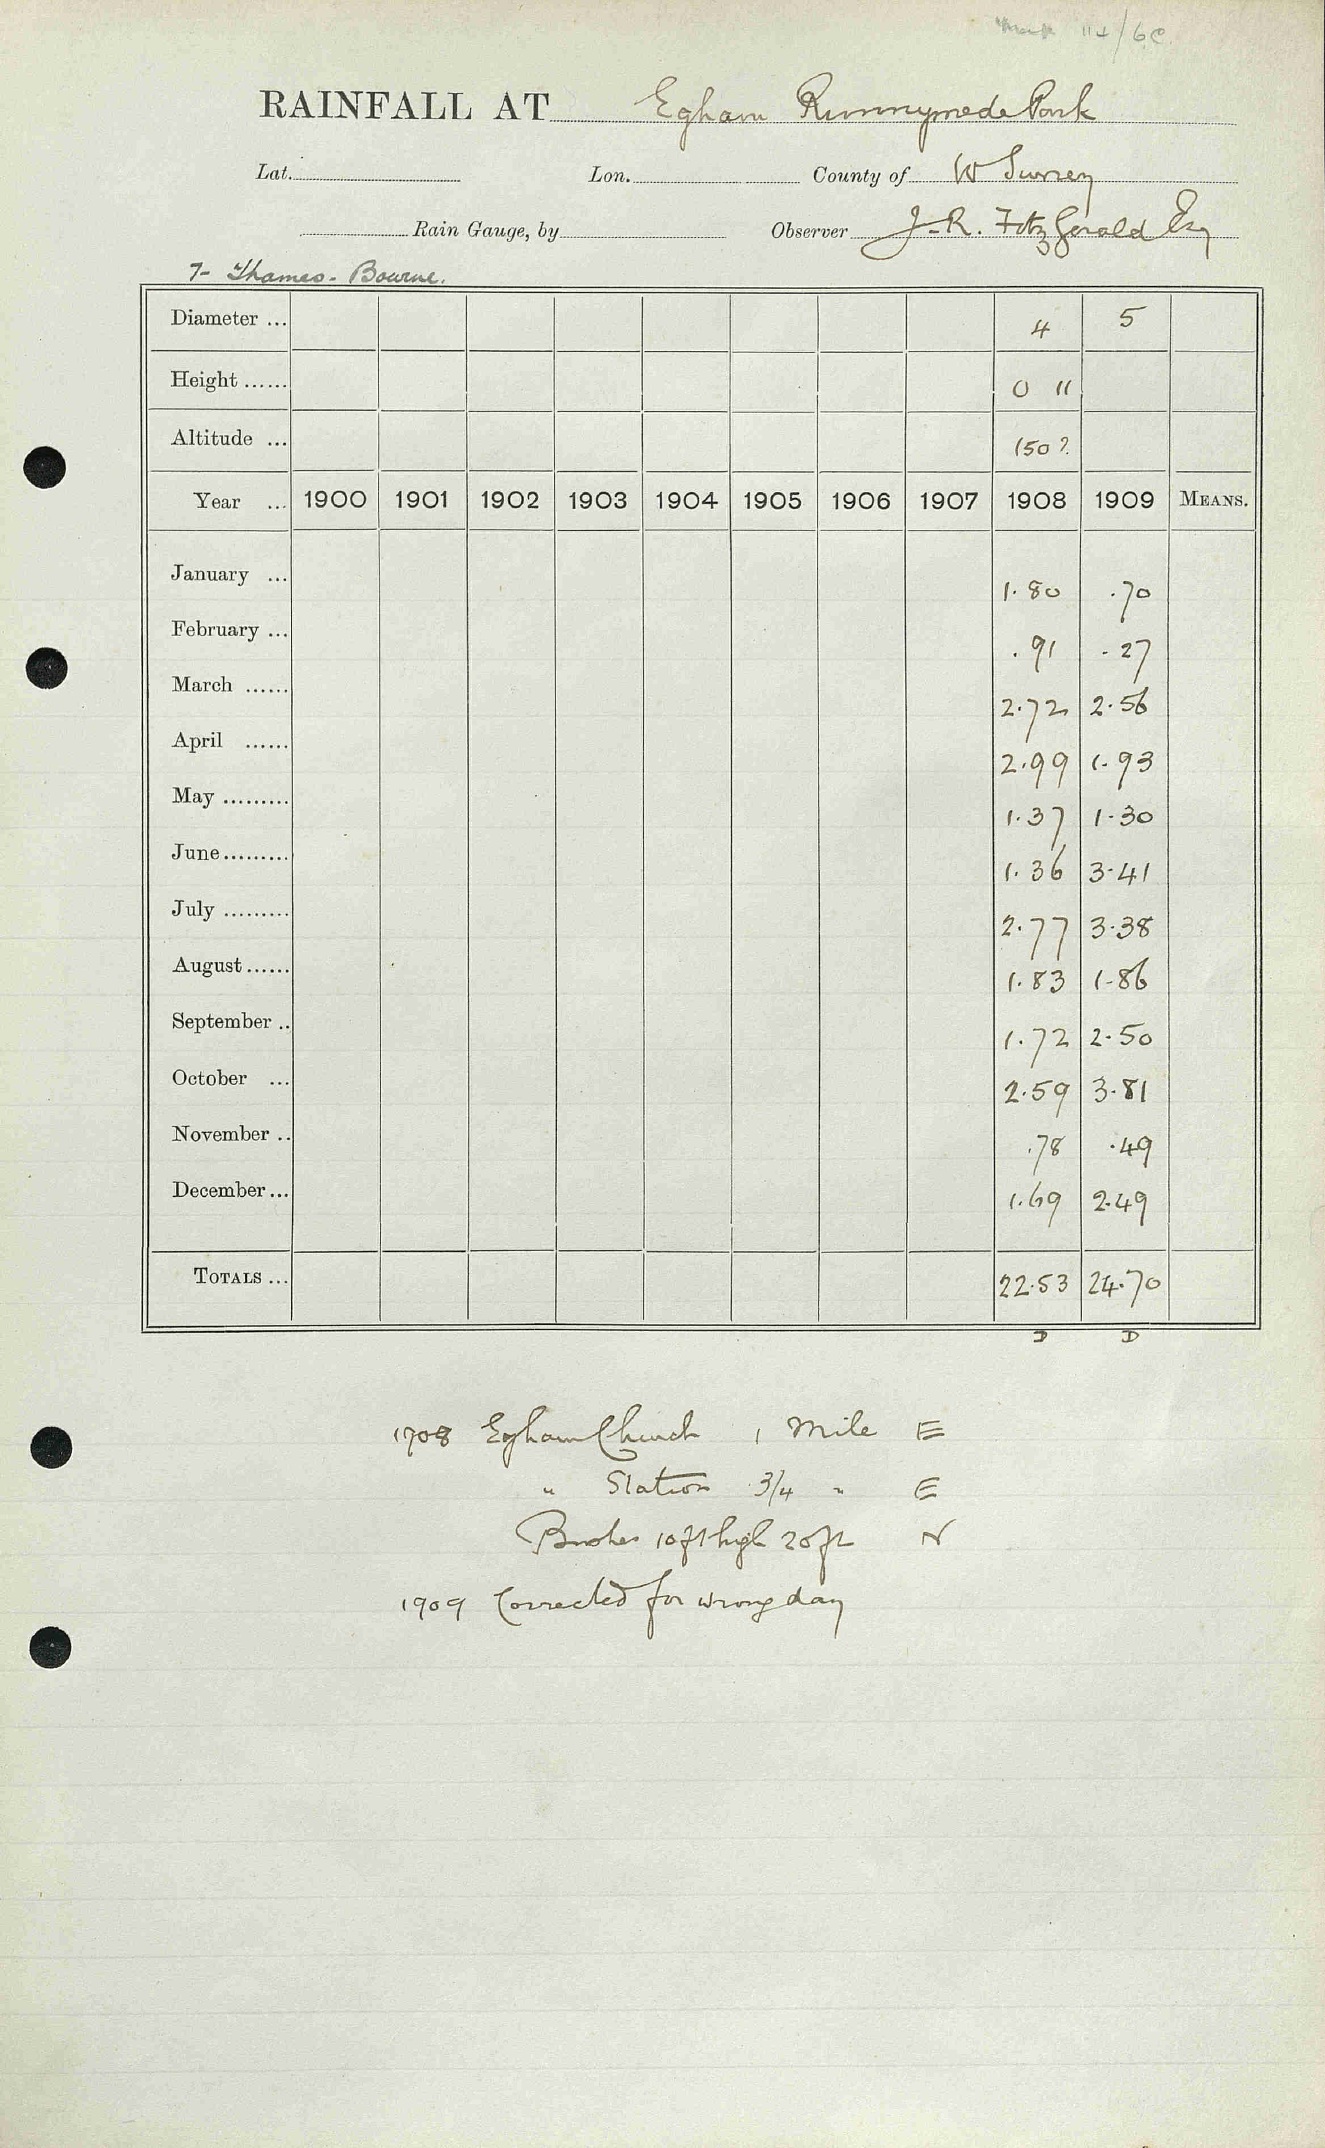 114/6C
RAINFALL AT Egham Runnymede Park
Lat. Lon. County of W Surrey
Rain Gauge, by Observer J. R. FitzGerald Esq
7- Thames - Bourne.
Diameter ... 4 5
Height ...... 0 11
Altitude ... 150?
Year ... 1900 1901 1902 1903 1904 1905 1906 1907 1908 1909 MEANS.
January ... 1.80 .70
February ... .91 .27
March ...... 2.72 2.56
April ...... 2.99 1.93
May ......... 1.37 1.30
June......... 1.36 3.41
July ......... 2.77 3.38
August...... 1.83 1.86
September .. 1.72 2.50
October ... 2.59 3.81
November .. .78 .49
December... 1.69 2.49
TOTALS ... 22.53 24.70
D D
1908 Egham Church 1 Mile E
" Station 3/4 " E
Bushes 10ft high 20ft N
1909 Corrected for wrong day